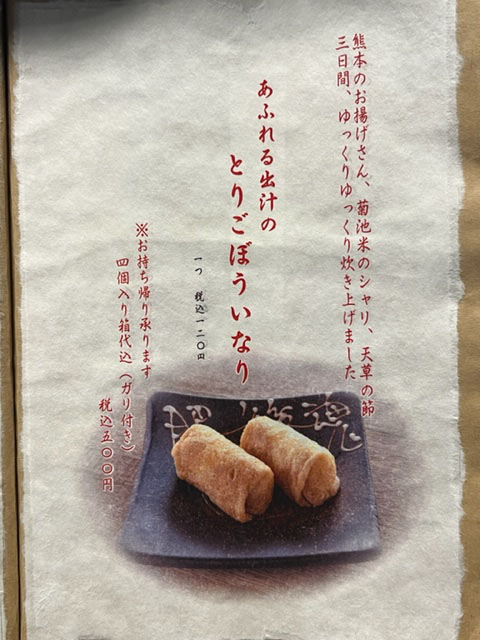 熊本のお揚げさん、菊池米のシャリ、天草の節
三日間、ゆっくりゆっくり炊き上げました
あふれる出汁の
とりごぼういなり
一つ　税込一二〇円
※お持ち帰り承ります
四個入り箱代込（ガリ付き）
税込五〇〇円